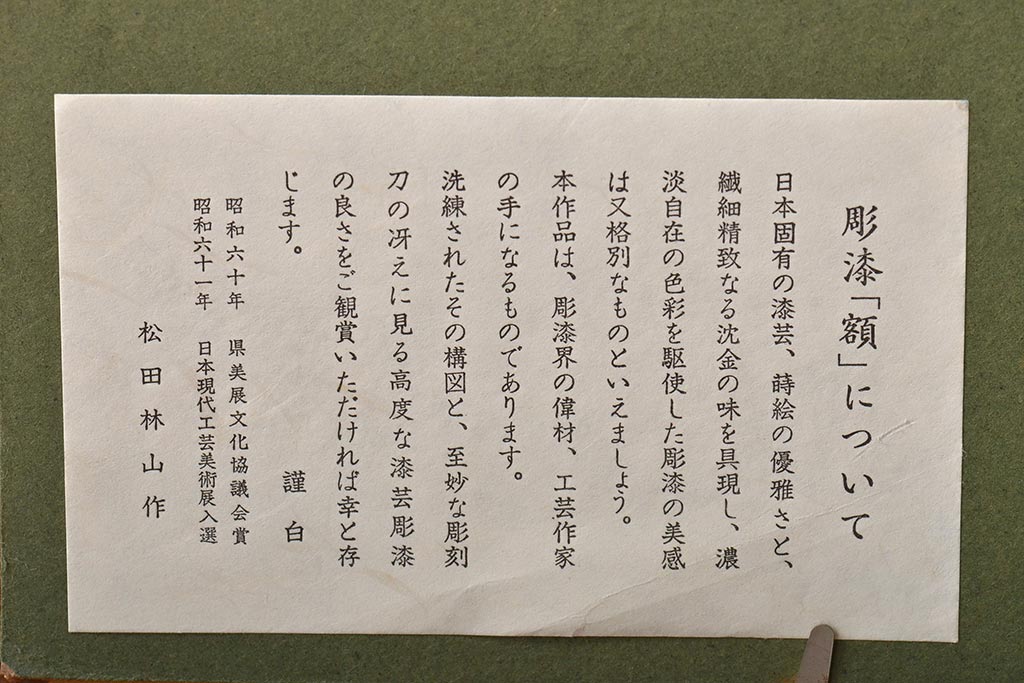 彫漆「額」について
日本固有の漆芸、蒔絵の優雅さと、
繊細精致なる沈金の味を具現し、濃
淡自在の色彩を駆使した彫漆の美感
は又格別なものといえましょう。
本作品は、彫漆界の偉材、工芸作家
の手になるものであります。
洗練されたその構図と、至妙な彫刻
刀の冴えに見る高度な漆芸彫漆
の良さをご観賞いただければ幸と存
じます。
謹白
昭和六十年 県美展文化協議会賞
昭和六十一年 日本現代工芸美術展入選
松田林山作